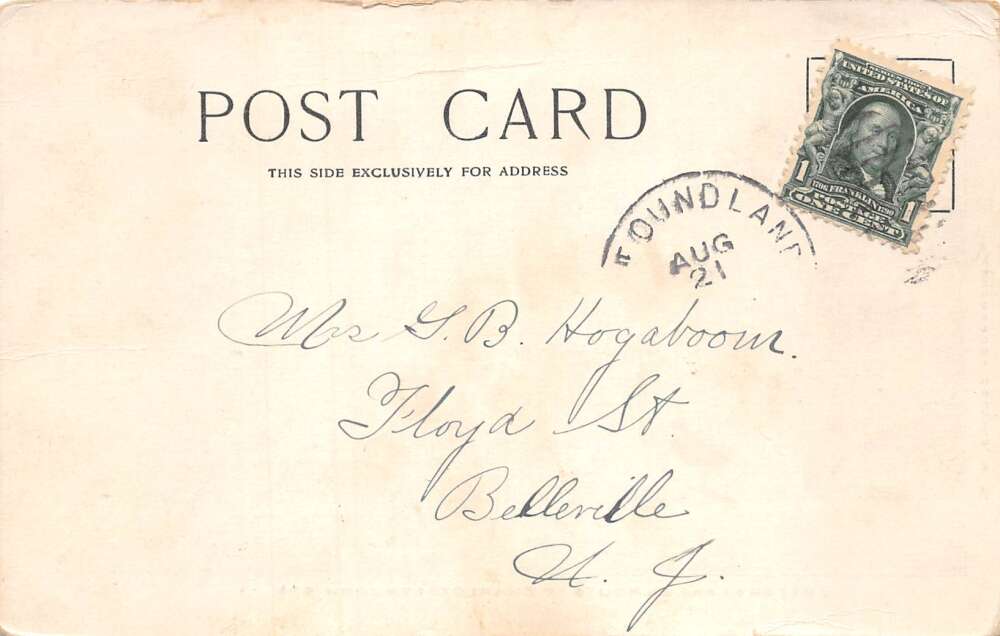 POST CARD
THIS SIDE EXCLUSIVELY FOR ADDRESS
UNITED STATES OF
AMERICA
1 1706 FRANKLIN 1790 1
POSTAGE
ONE CENT
OUNDLAN
AUG
21
Mrs G. B. Hogaboom.
Floyd St.
Belleville
N. J.